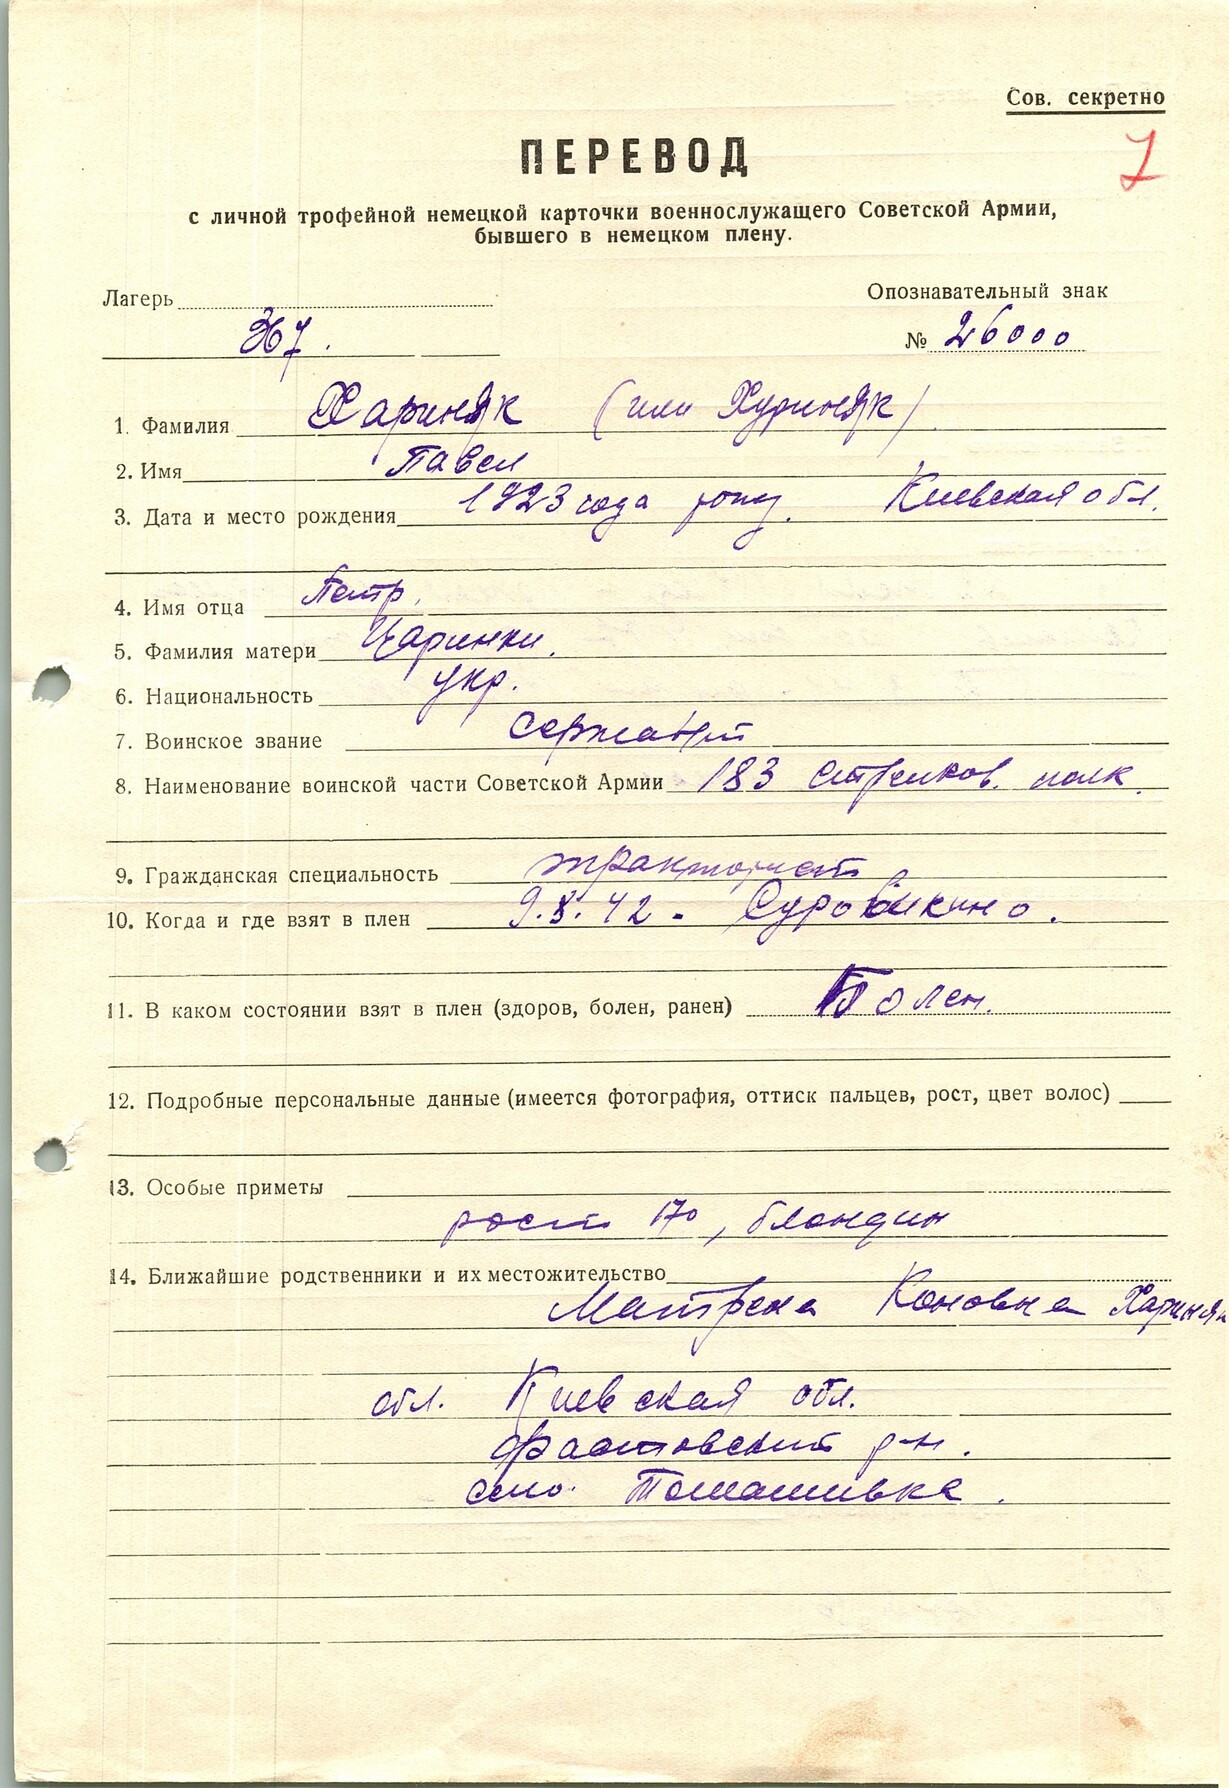 Сов. секретно
7
ПЕРЕВОД
с личной трофейной немецкой карточки военнослужащего Советской Армии,
бывшего в немецком плену.
Лагерь
Опознавательный знак
367.
№ 26000
1. Фамилия Хариняк (или Хуриняк)
2. Имя Павел
3. Дата и место рождения 1923 года Киевская обл.
4. Имя отца Петр.
5. Фамилия матери Царинки.
6. Национальность укр.
7. Воинское звание сержант
8. Наименование воинской части Советской Армии 183 стрелков. полк.
9. Гражданская специальность тракторист
10. Когда и где взят в плен 9.8.42 - Суровикино.
11. В каком состоянии взят в плен (здоров, болен, ранен) Болен.
12. Подробные персональные данные (имеется фотография, оттиск пальцев, рост, цвет волос)
13. Особые приметы
рост 170, блондин
14. Ближайшие родственники и их местожительство
Матрена Коновна Хариняк
обл. Киевская обл.
Фастовский р-н.
село. Томашивка.